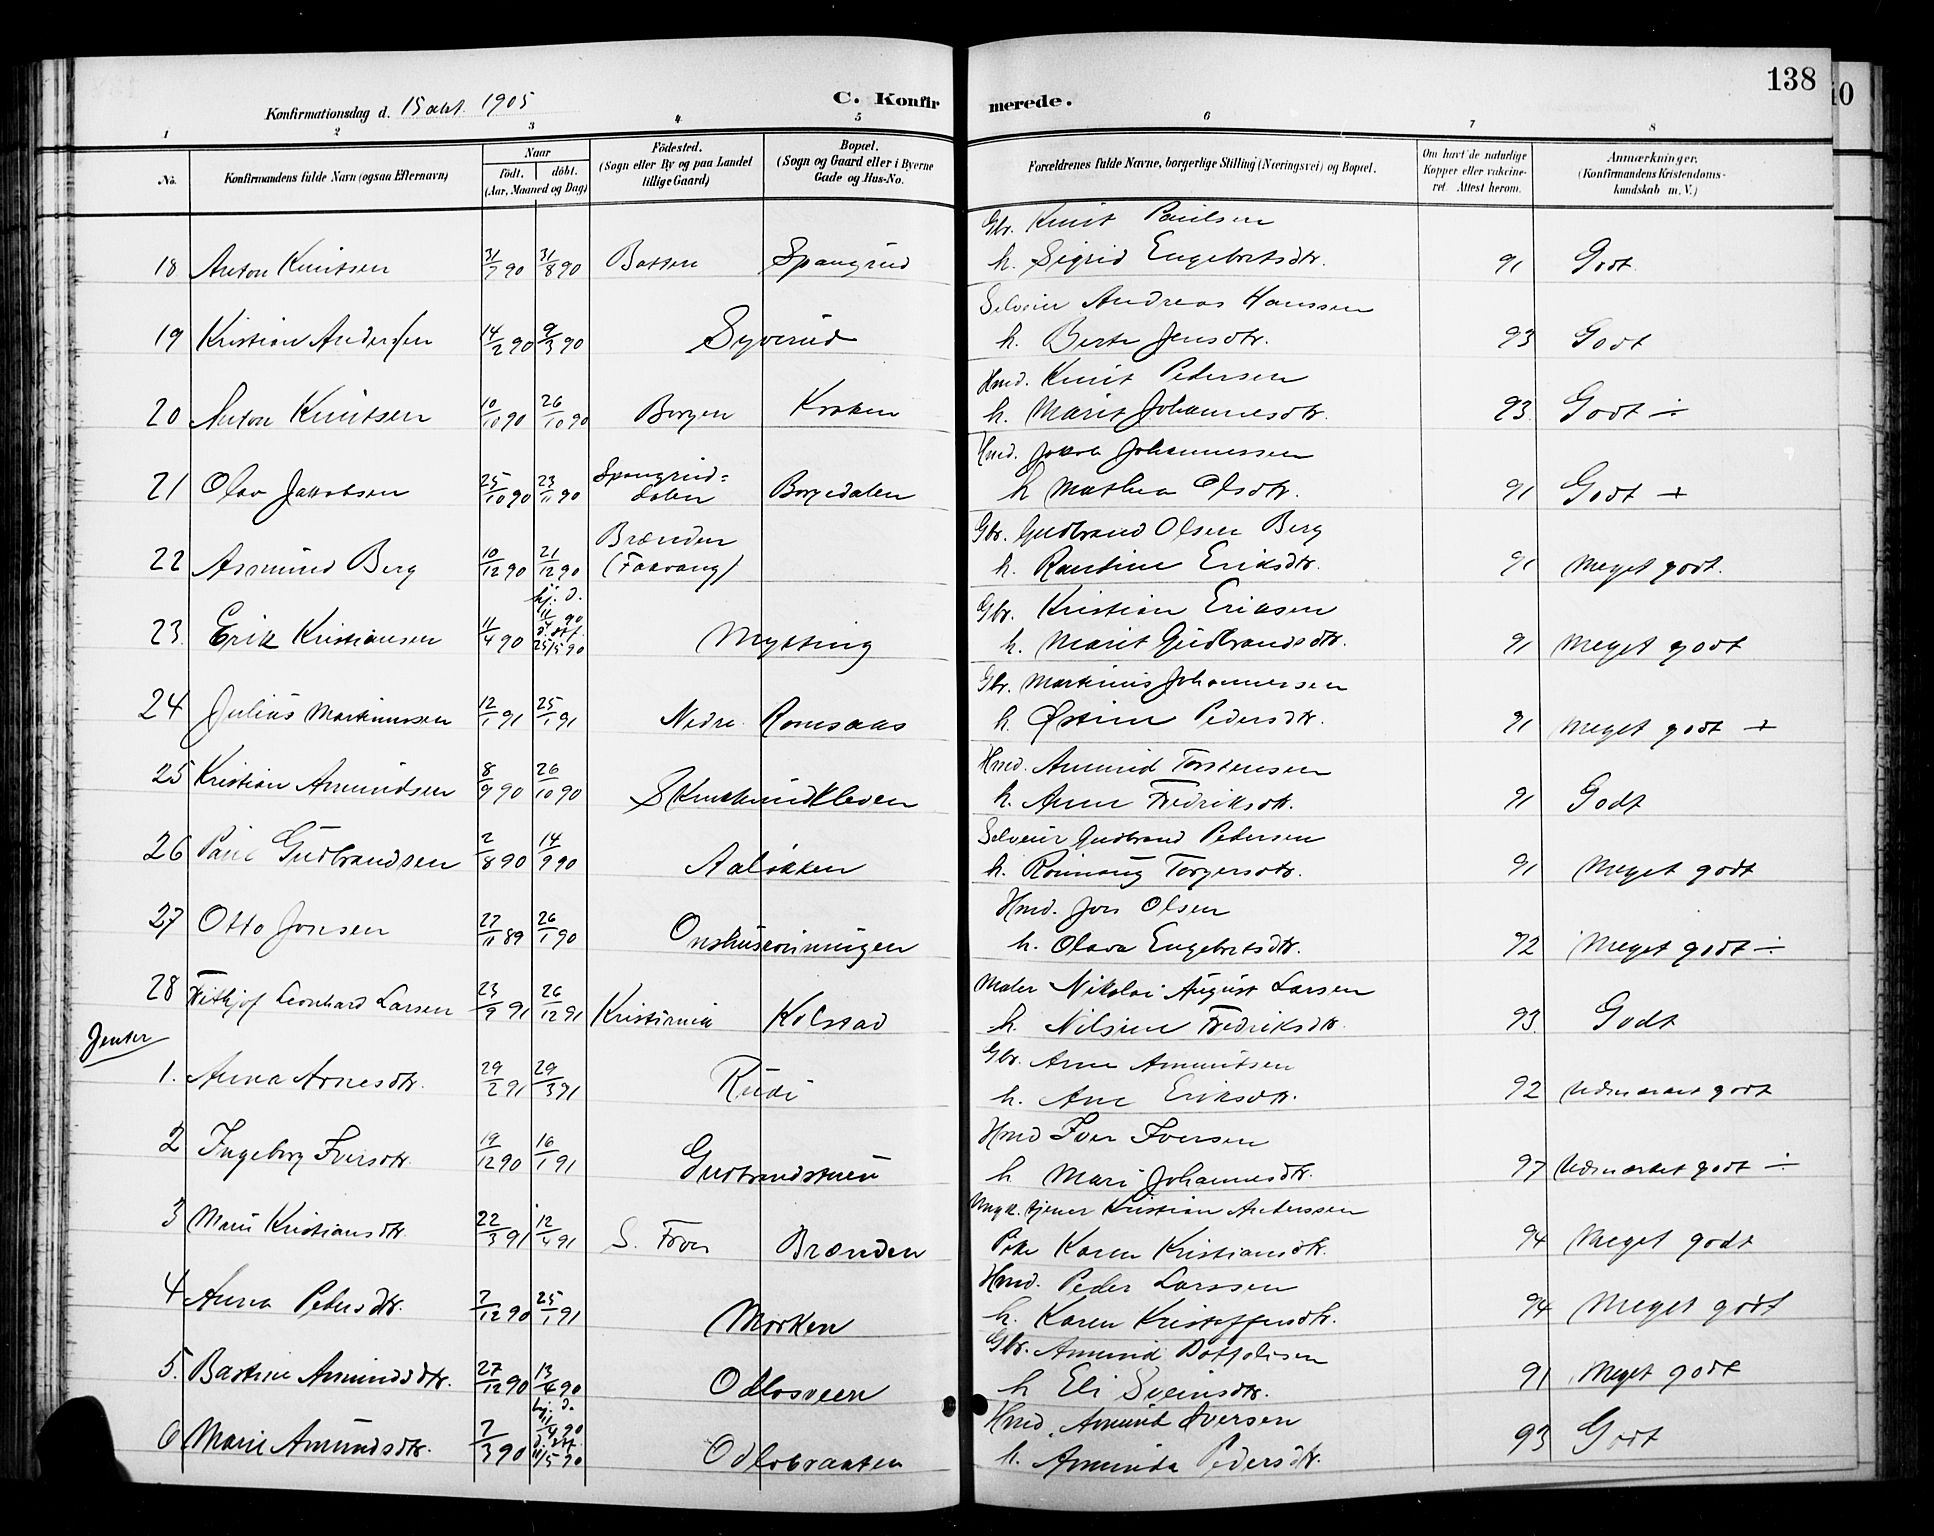 138
Konfirmationsdag d. 15 okt. 1905
C. Konfirmerede.
1 2 3 4 5 6 7 8
No.
Konfirmandens fulde Navn (ogsaa Efternavn)
Naar
födt. döbt.
(Aar, Maaned og Dag)
Födested.
(Sogn eller By og paa Landet
tillige Gaard)
Bopæl.
(Sogn og Gaard eller i Byerne
Gade og Hus-No.
Forældrenes fulde Navne, borgerlige Stilling (Næringsvei) og Bopæl.
Om havt de naturlige
Kopper eller vakcine-
ret. Attest herom.
Anmærkninger.
(Konfirmandens Kristendoms-
kundskab m. V.)
Gbr. Knut Paulsen
18 Anton Knutsen 31/7 90 31/8 90 Batten Spangrud h. Sigrid Engebretsdtr. 91 Godt
Selveier Andreas Hanssen
19 Kristian Andersen 14/2 90 9/3 90 Syverud h. Berte Jensdtr. 93 Godt
Hmd. Knut Pedersen
20 Anton Knutsen 10/10 90 26/10 90 Borgen Kraken h. Marit Johannesdtr. 93. Godt ÷
Hmd. Jakob Johannessen
21 Olav Jakobsen 25/10 90 23/11 90 Spangrud=dalen Borgedalen h Mathea Olsdtr. 91 Godt +
Gbr. Gudbrand Olsen Berg
22 Asmund Berg 10/12 90 21/12 90 Brænden (Faavang) h. Rantine Eriksdtr. 91 Meget godt.
Gbr. Kristian Eriksen
23. Erik Kristiansen 11/4 90 hj. d. 11/4 90 d. stf. 25/5 90 Mytting h. Marit Gudbrandsdtr. 91 Meget godt
Gbr. Martinus Johannessen
24 Julius Martinussen 12/1 91 25/1 91 Nedre Romsaas h. Østine Pedersdtr. 91 Meget godt +
Hmd. Amund Torstensen
25 Kristian Amundsen 8/9 90 26/10 90 Skurkrudkleven h. Anne Fredriksdtr. 91 Godt
Selveier Gudbrand Pedersen
26 Paul Gudbrandsen 2/8 90 14/9 90 Aaløkken h. Rönnaug Torgersdtr. 91 Meget godt
Hmd. Jon Olsen
27 Otto Jonsen 22/11 89 26/1 90 Onshusvinningen h. Olava Engebretsdtr. 92 Meget godt ÷
Maler Nikolai August Larsen
28 Fritjof Leonhard Larsen 23/9 91 26/12 91 Kristiania Kolstad h. Nilsine Fredriksdtr. 93 Godt
Jenter
Gbr. Arne Amundsen
1. Anna Arnesdtr. 29/2 91 29/3 91 Rudi h. Ane Eriksdtr. 92 Udmærket godt
Hmd Iver Iversen
2 Ingeborg Iversdtr. 19/12 90 16/1 91 Gudbrandstuen h Mari Johannesdtr. 97 Udmærket godt ÷
Ungk. tjener Kristian Anderssen
3 Mari Kristiansdtr. 22/3 91 12/4 91 S. Fron Brænden Pike Karen Kristiansdtr. 94 Meget godt
Hmd. Peder Larssen
4 Anna Pedersdtr. 7/12 90 25/1 91 Morken h. Karen Kristoffersdtr. 94 Meget godt
Gbr. Amund Botfolvsen
5. Bastine Amundsdtr. 27/12 90 13/4 90 Odlosveen h Eli Sveinsdtr. 91 Meget godt
Hmd. Amund Iversen
6 Marie Amundsdtr. 7/3 90 hj. d. 11/4 90 d. stf. 11/5 90 Odlobraaten h. Amunda Pedersdtr. 93 Godt